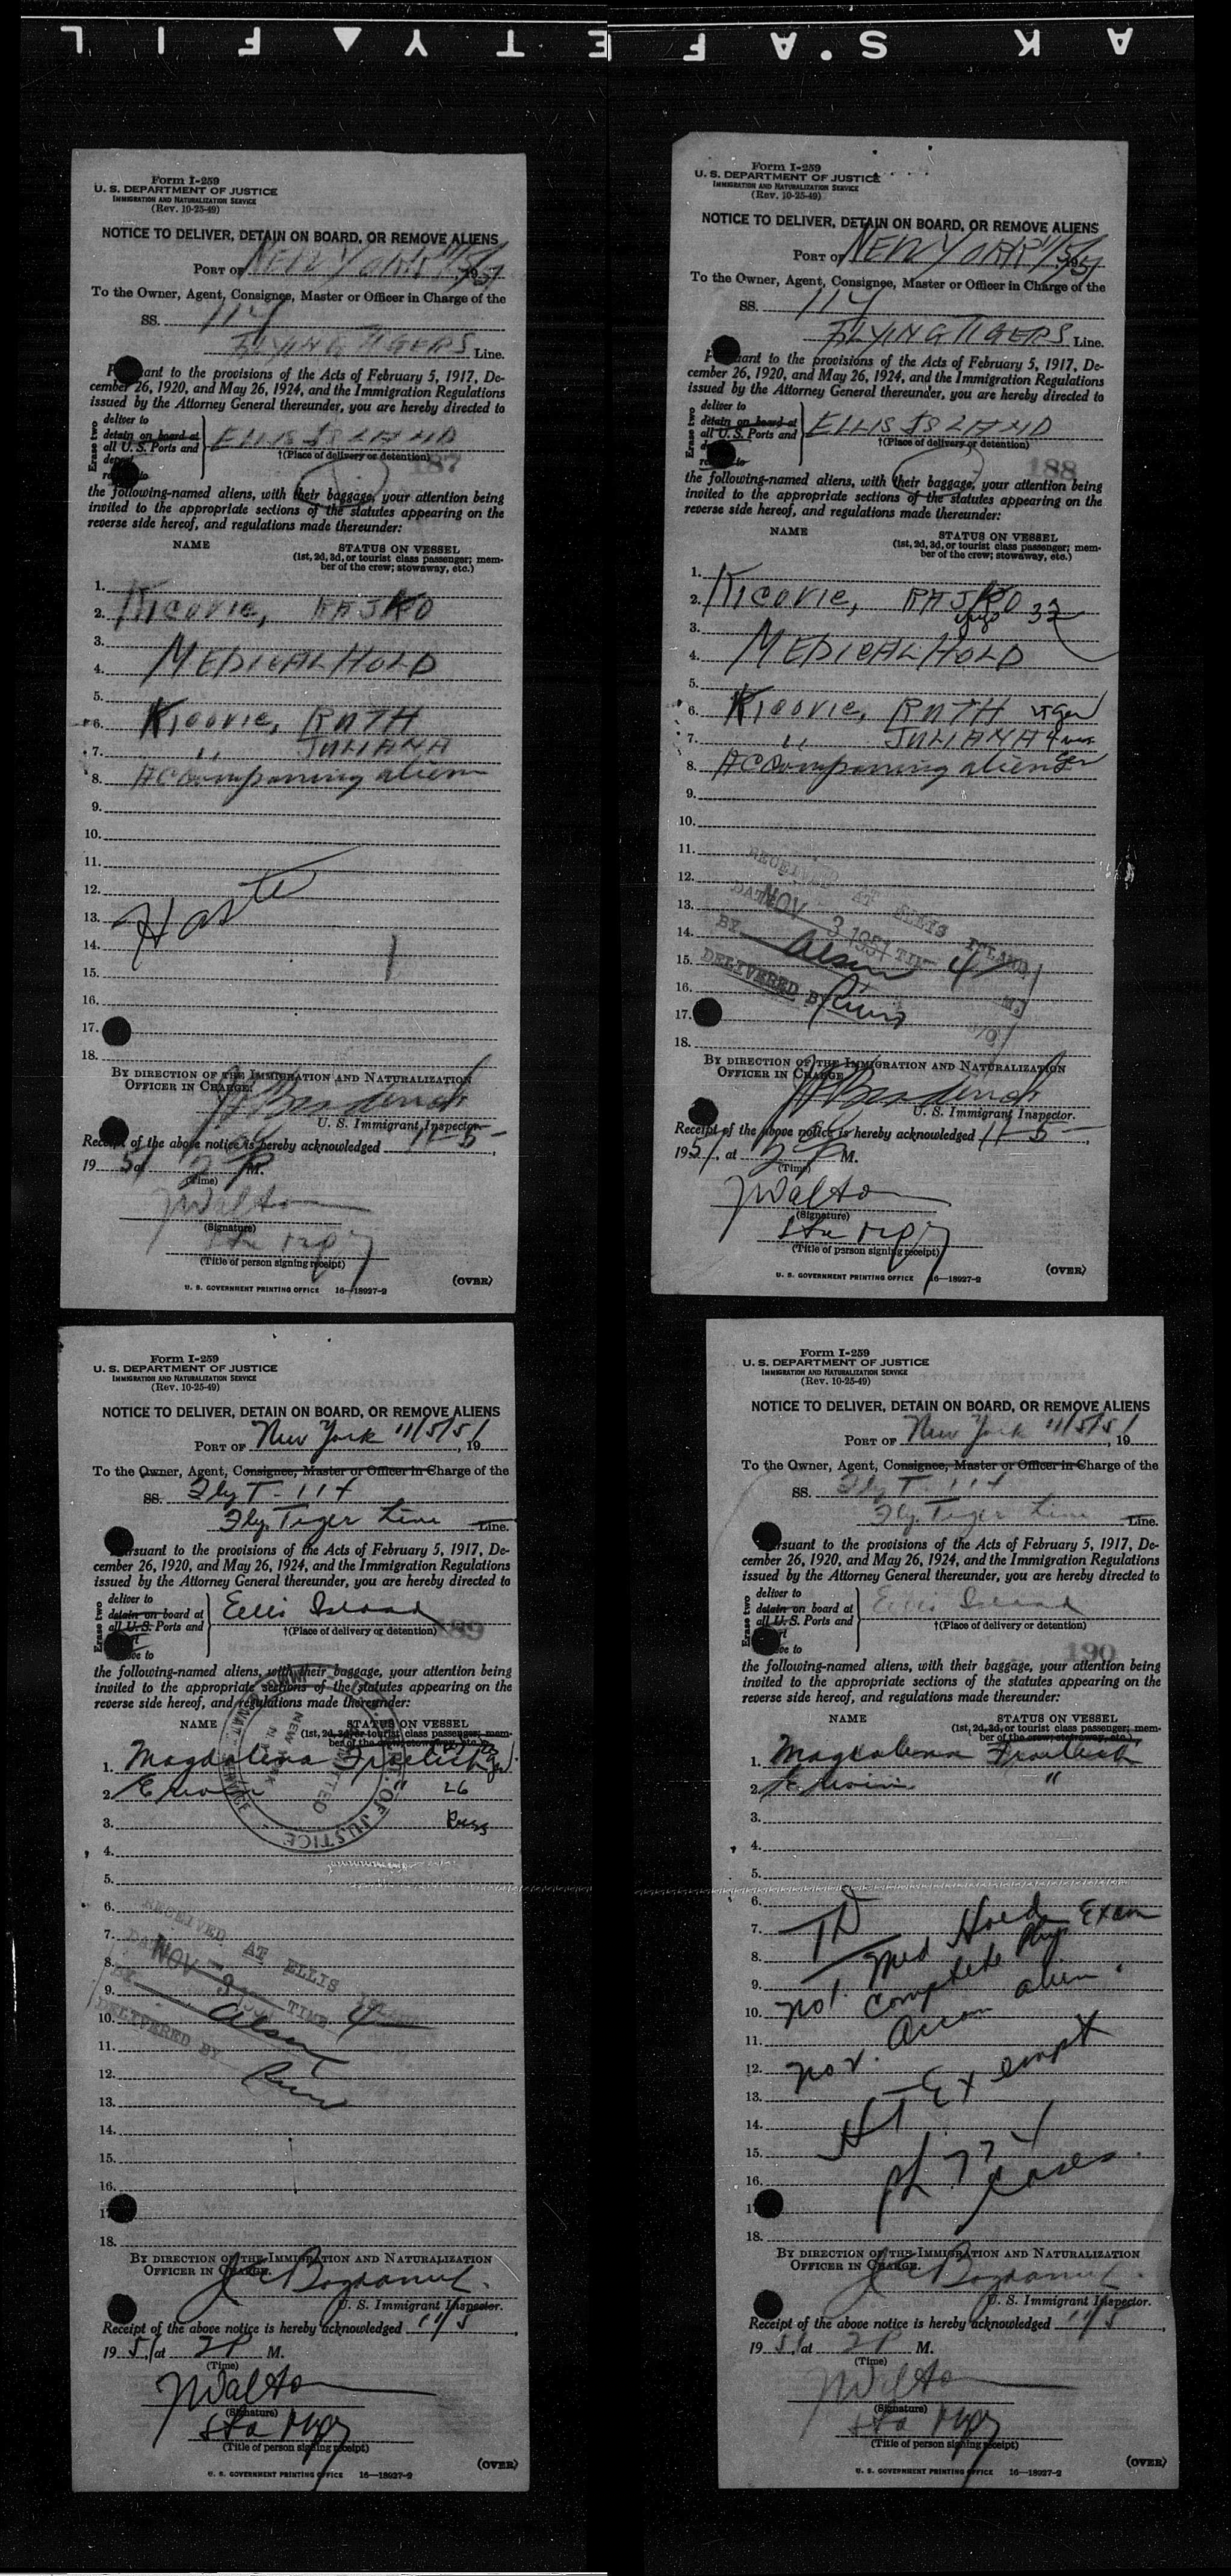 Form I-259
U. S. DEPARTMENT OF JUSTICE
IMMIGRATION AND NATURALIZATION SERVICE
(Rev. 10-25-49)
NOTICE TO DELIVER, DETAIN ON BOARD, OR REMOVE ALIENS
PORT OF NEW YORK 11/5/51
To the Owner, Agent, Consignee, Master or Officer in Charge of the
SS. 114
FLYING TIGERS Line.
Pursuant to the provisions of the Acts of February 5, 1917, De-
cember 26, 1920, and May 26, 1924, and the Immigration Regulations
issued by the Attorney General thereunder, you are hereby directed to
Erase two
deliver to
detain on board at
all U. S. Ports and
ELLIS ISLAND
†(Place of delivery or detention)
187
the following-named aliens, with their baggage, your attention being
invited to the appropriate sections of the statutes appearing on the
reverse side hereof, and regulations made thereunder:
NAME STATUS ON VESSEL
(1st, 2d, 3d, or tourist class passenger; mem-
ber of the crew; stowaway, etc.)
1.
2. KICOVIC, RAJKO
3.
4. MEDICAL HOLD
5.
6. KICOVIC, RUTH
7. " JULIANA
8. Accompanying alien
9.
10.
11.
12.
13.
14.
15.
16.
17.
18.
BY DIRECTION OF THE IMMIGRATION AND NATURALIZATION
OFFICER IN CHARGE.
U. S. Immigrant Inspector.
Receipt of the above notice is hereby acknowledged 11-5-,
1951 at 2 P M.
(Time)
J Walton
(Signature)
Sta Mgr
(Title of person signing receipt)
(OVER)
U. S. GOVERNMENT PRINTING OFFICE 16—18927-2
Form I-259
U. S. DEPARTMENT OF JUSTICE
IMMIGRATION AND NATURALIZATION SERVICE
(Rev. 10-25-49)
NOTICE TO DELIVER, DETAIN ON BOARD, OR REMOVE ALIENS
PORT OF NEW YORK 11/5/51
To the Owner, Agent, Consignee, Master or Officer in Charge of the
SS. 114
FLYING TIGERS Line.
Pursuant to the provisions of the Acts of February 5, 1917, De-
cember 26, 1920, and May 26, 1924, and the Immigration Regulations
issued by the Attorney General thereunder, you are hereby directed to
Erase two
deliver to
detain on board at
all U. S. Ports and
ELLIS ISLAND
†(Place of delivery or detention)
188
the following-named aliens, with their baggage, your attention being
invited to the appropriate sections of the statutes appearing on the
reverse side hereof, and regulations made thereunder:
NAME STATUS ON VESSEL
(1st, 2d, 3d, or tourist class passenger; mem-
ber of the crew; stowaway, etc.)
1.
2. KICOVIC, RAJKO 32
3. Yugo
4. MEDICAL HOLD
5.
6. KICOVIC, RUTH Ger
7. " JULIANA
8. Accompanying alien Ger
9.
10.
11.
12.
13.
14.
15.
16.
17.
18.
RECEIVED AT ELLIS ISLAND
DATE NOV 3 1951 TIME 4
BY Olsen
DELIVERED BY
BY DIRECTION OF THE IMMIGRATION AND NATURALIZATION
OFFICER IN CHARGE.
U. S. Immigrant Inspector.
Receipt of the above notice is hereby acknowledged 11-5-,
1951, at 2 P M.
(Time)
J Walton
(Signature)
Sta Mgr
(Title of person signing receipt)
(OVER)
U. S. GOVERNMENT PRINTING OFFICE 16—18927-2
Form I-259
U. S. DEPARTMENT OF JUSTICE
IMMIGRATION AND NATURALIZATION SERVICE
(Rev. 10-25-49)
NOTICE TO DELIVER, DETAIN ON BOARD, OR REMOVE ALIENS
PORT OF New York 11/5/51, 19
To the Owner, Agent, Consignee, Master or Officer in Charge of the
SS. Fly T- 114
Fly. Tiger Line Line.
Pursuant to the provisions of the Acts of February 5, 1917, De-
cember 26, 1920, and May 26, 1924, and the Immigration Regulations
issued by the Attorney General thereunder, you are hereby directed to
Erase two
deliver to
detain on board at
all U. S. Ports and
Ellis Island
†(Place of delivery or detention)
189
the following-named aliens, with their baggage, your attention being
invited to the appropriate sections of the statutes appearing on the
reverse side hereof, and regulations made thereunder:
NAME STATUS ON VESSEL
(1st, 2d, 3d, or tourist class passenger; mem-
ber of the crew; stowaway, etc.)
1. Magdalena Froelich
2. Erwin " 26
3.
4.
5.
6.
7.
8.
9.
10.
11.
12.
13.
14.
15.
16.
17.
18.
RECEIVED AT ELLIS ISLAND
DATE NOV 3 1951 TIME 4
BY Olsen
DELIVERED BY
BY DIRECTION OF THE IMMIGRATION AND NATURALIZATION
OFFICER IN CHARGE.
U. S. Immigrant Inspector.
Receipt of the above notice is hereby acknowledged 11/5,
1951, at 2P M.
(Time)
J Walton
(Signature)
Sta Mgr
(Title of person signing receipt)
(OVER)
U. S. GOVERNMENT PRINTING OFFICE 16—18927-2
Form I-259
U. S. DEPARTMENT OF JUSTICE
IMMIGRATION AND NATURALIZATION SERVICE
(Rev. 10-25-49)
NOTICE TO DELIVER, DETAIN ON BOARD, OR REMOVE ALIENS
PORT OF New York 11/5/51, 19
To the Owner, Agent, Consignee, Master or Officer in Charge of the
SS. Fly T- 114
Fly. Tiger Line Line.
Pursuant to the provisions of the Acts of February 5, 1917, De-
cember 26, 1920, and May 26, 1924, and the Immigration Regulations
issued by the Attorney General thereunder, you are hereby directed to
Erase two
deliver to
detain on board at
all U. S. Ports and
Ellis Island
†(Place of delivery or detention)
190
the following-named aliens, with their baggage, your attention being
invited to the appropriate sections of the statutes appearing on the
reverse side hereof, and regulations made thereunder:
NAME STATUS ON VESSEL
(1st, 2d, 3d, or tourist class passenger; mem-
ber of the crew; stowaway, etc.)
1. Magdalena Froelich
2. Erwin "
3.
4.
5.
6.
7. TD
8. Med Hold Exam
9. No1. Complete Phys
10. Accom alien.
11.
12. No2.
13. HT Exempt
14.
15.
16. cases.
17.
18.
BY DIRECTION OF THE IMMIGRATION AND NATURALIZATION
OFFICER IN CHARGE.
U. S. Immigrant Inspector.
Receipt of the above notice is hereby acknowledged 11/5,
1951, at 2P M.
(Time)
J Walton
(Signature)
Sta Mgr
(Title of person signing receipt)
(OVER)
U. S. GOVERNMENT PRINTING OFFICE 16—18927-2